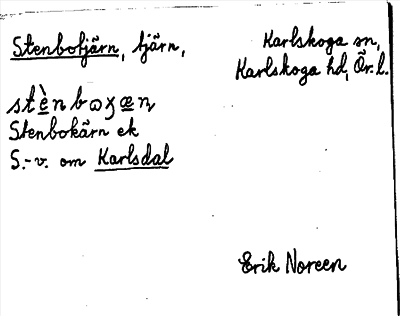 Stenbotjärn, tjärn,
Karlskoga sn,
Karlskoga hd, Ör. l.
Stenbokärn ek
S.-v. om Karlsdal
Erik Noreen